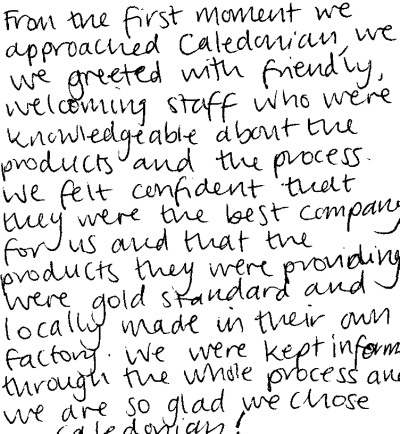 From the first moment we
approached Caledonian, we
we greeted with friendly,
welcoming staff who were
knowledgeable about the
products and the process.
We felt confident that
they were the best company
for us and that the
products they were providing
were gold standard and
locally made in their own
factory. We were kept inform
through the whole process and
we are so glad we chose
caledonian!